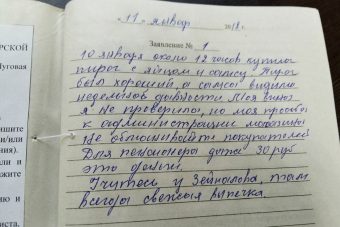 РСКОЙ
"11" января 2018 г.
Заявление № 1
уговая
10 января около 12 часов купила
пирог с яйцом и самсу. Пирог
был хороший, а самса видимо
недельной давности. Моя вина
я не проверила, но моя просьба
к администрации магазина
не обманывайте покупателей
Для пенсионеров даже 30 руб
это деньги.
Учитесь у Зейналова, там
всегда свежая выпечка.
ишите
и/или
ния).
ли и
жите
ию и
иста,